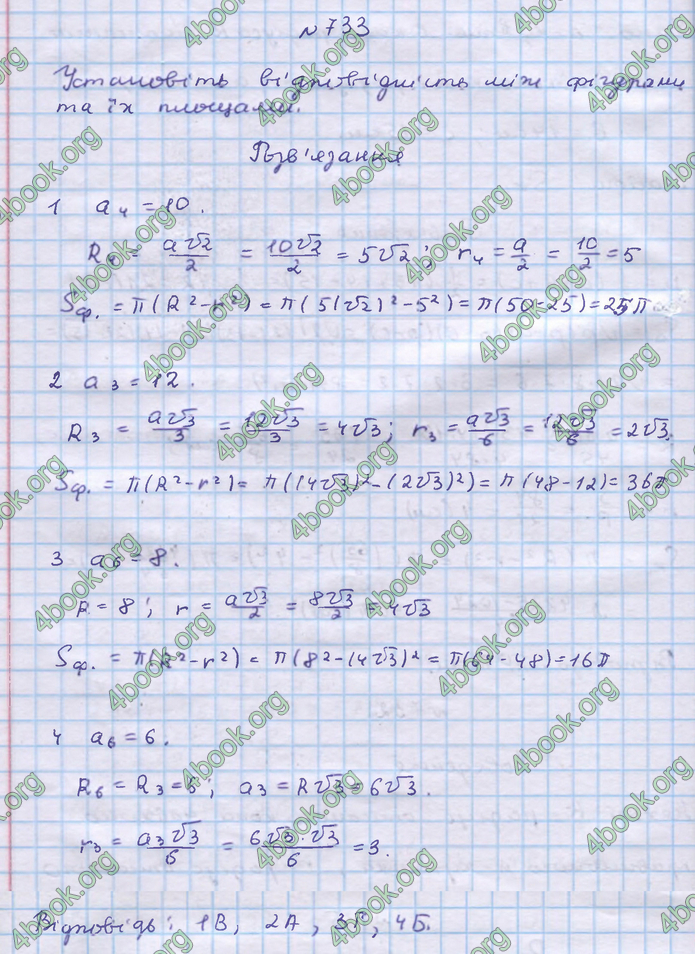 № 733
Установіть відповідність між фігурами
та їх площами.
Розв'язання
1 a₄ = 10.
R₄ = a√2/2 = 10√2/2 = 5√2; r₄ = a/2 = 10/2 = 5
Sф. = π(R²-r²) = π(5(√2)²-5²) = π(50-25) = 25π
2 a₃ = 12.
R₃ = a√3/3 = 12√3/3 = 4√3; r₃ = a√3/6 = 12√3/6 = 2√3.
Sф. = π(R²-r²) = π((4√3)²-(2√3)²) = π(48-12) = 36π
3 a₆ = 8.
R = 8; r = a√3/2 = 8√3/2 = 4√3
Sф. = π(R²-r²) = π(8²-(4√3)² = π(64-48) = 16π
4 a₆ = 6.
R₆ = R₃ = 6; a₃ = R√3 = 6√3.
r₃ = a₃√3/6 = 6√3·√3/6 = 3.
Відповідь: 1В, 2А, 3Г, 4Б.
4book.org